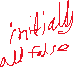 initially
all false